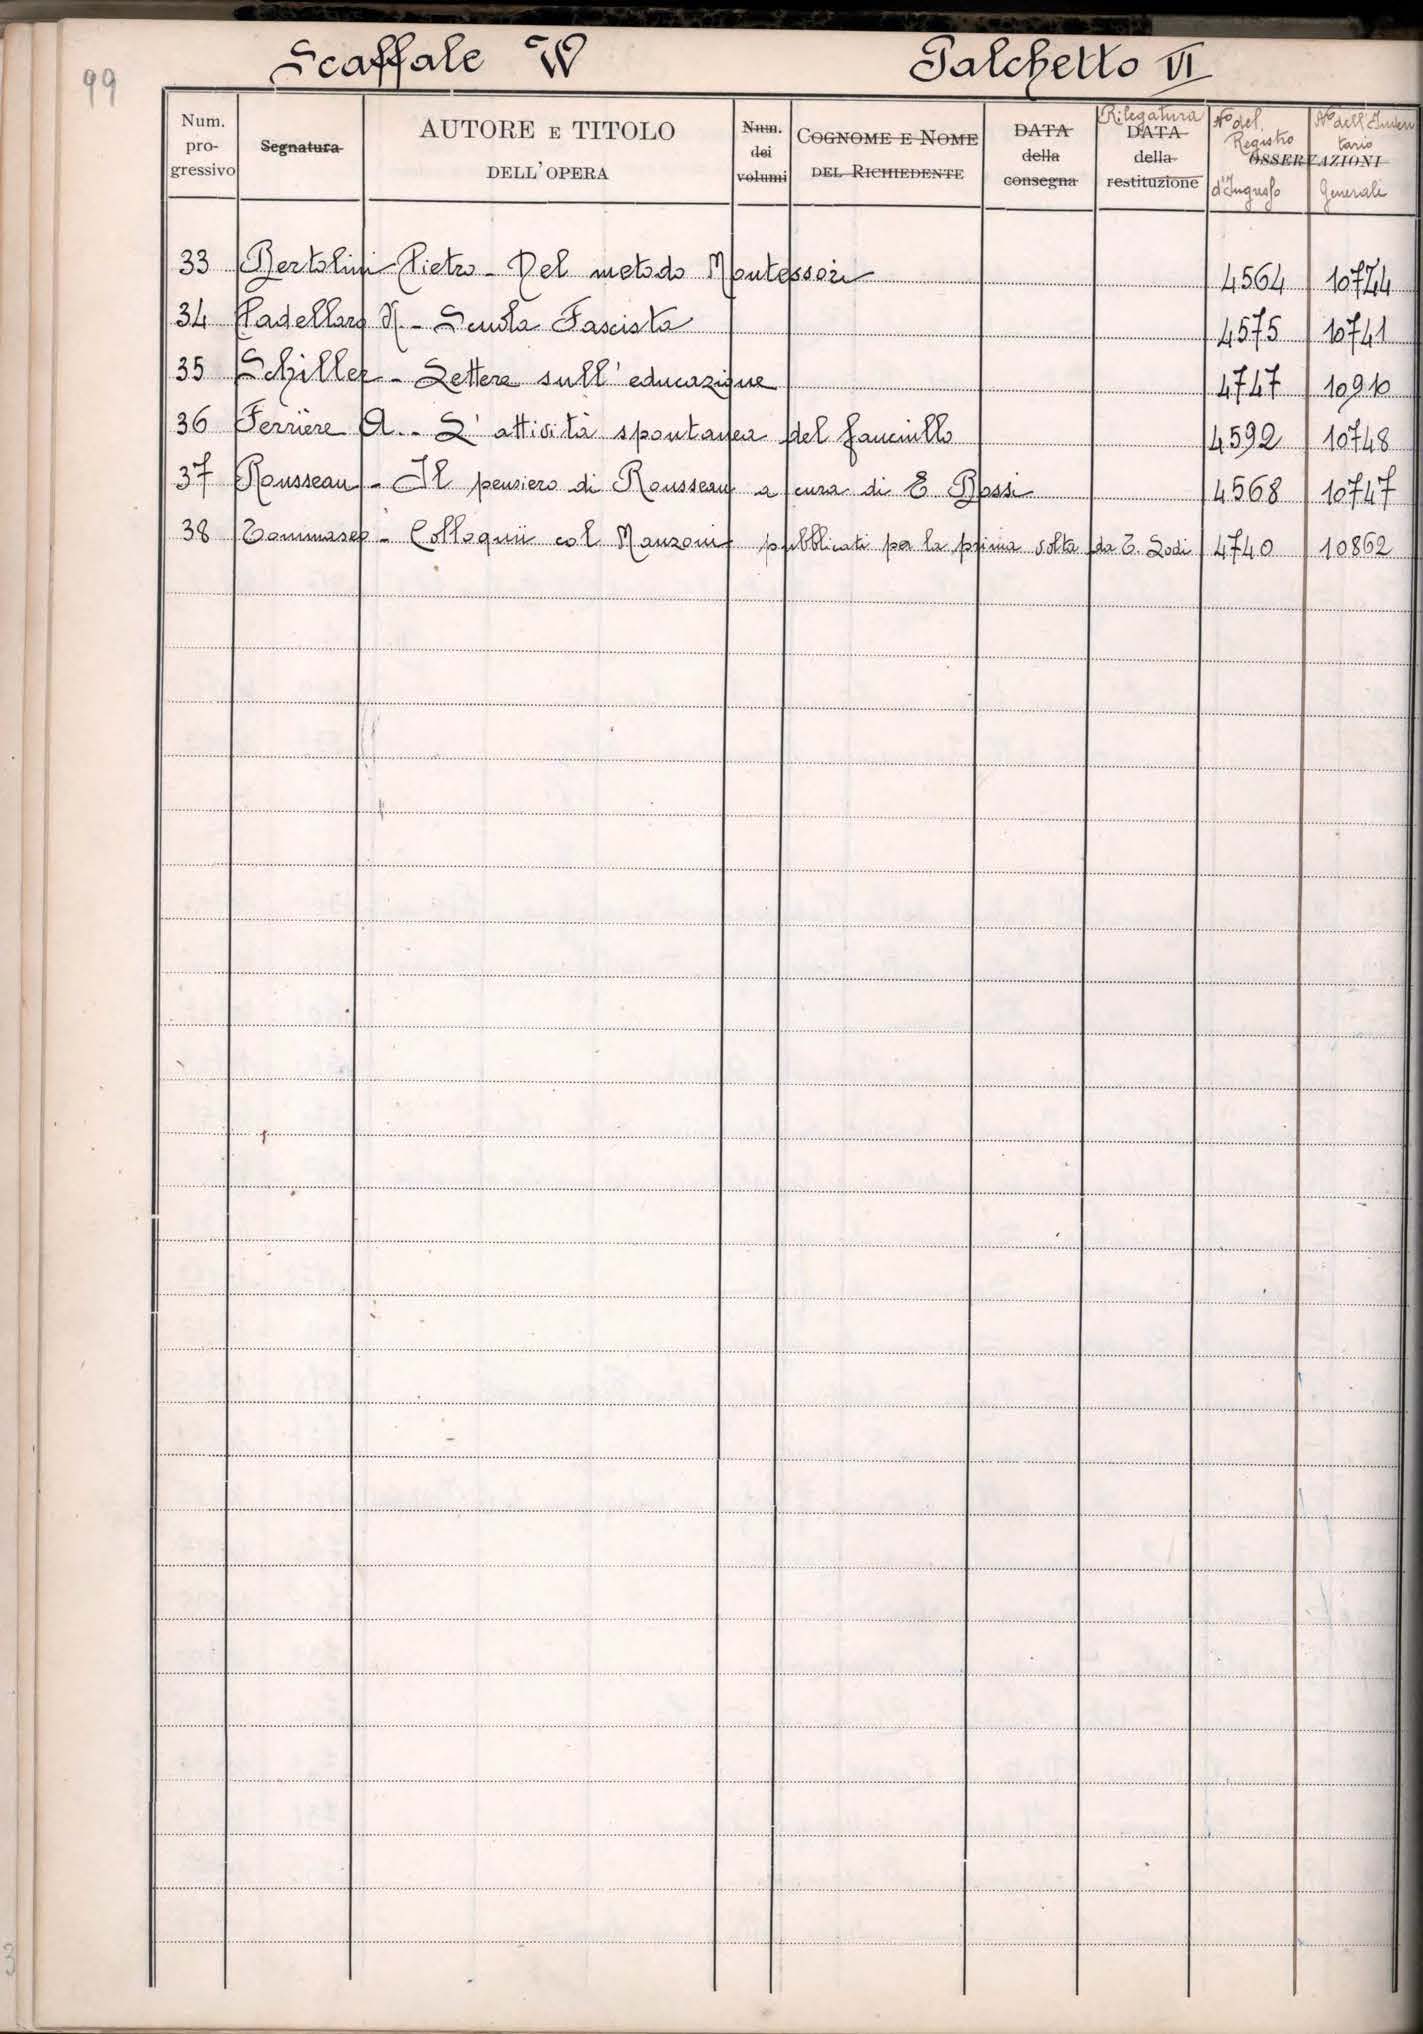 99
Scaffale W Palchetto VI
Num. progressivo
Segnatura
AUTORE E TITOLO DELL'OPERA
Num. dei volumi
COGNOME E NOME DEL RICHIEDENTE
DATA della consegna
Rilegatura
DATA della restituzione
N° del Registro d'Ingresso
OSSERVAZIONI
N° dell'Inventario Generale
33 Bertolini Pietro - Del metodo Montessori 4564 10744
34 Padellaro N. - Scuola Fascista 4575 10741
35 Schiller - Lettere sull'educazione 4747 10910
36 Ferrière A. - L'attività spontanea del fanciullo 4592 10748
37 Rousseau - Il pensiero di Rousseau a cura di E Bossi 4568 10747
38 Tommaseo - Colloquii col Manzoni pubblicati per la prima volta da T. Lodi 4740 10862
3